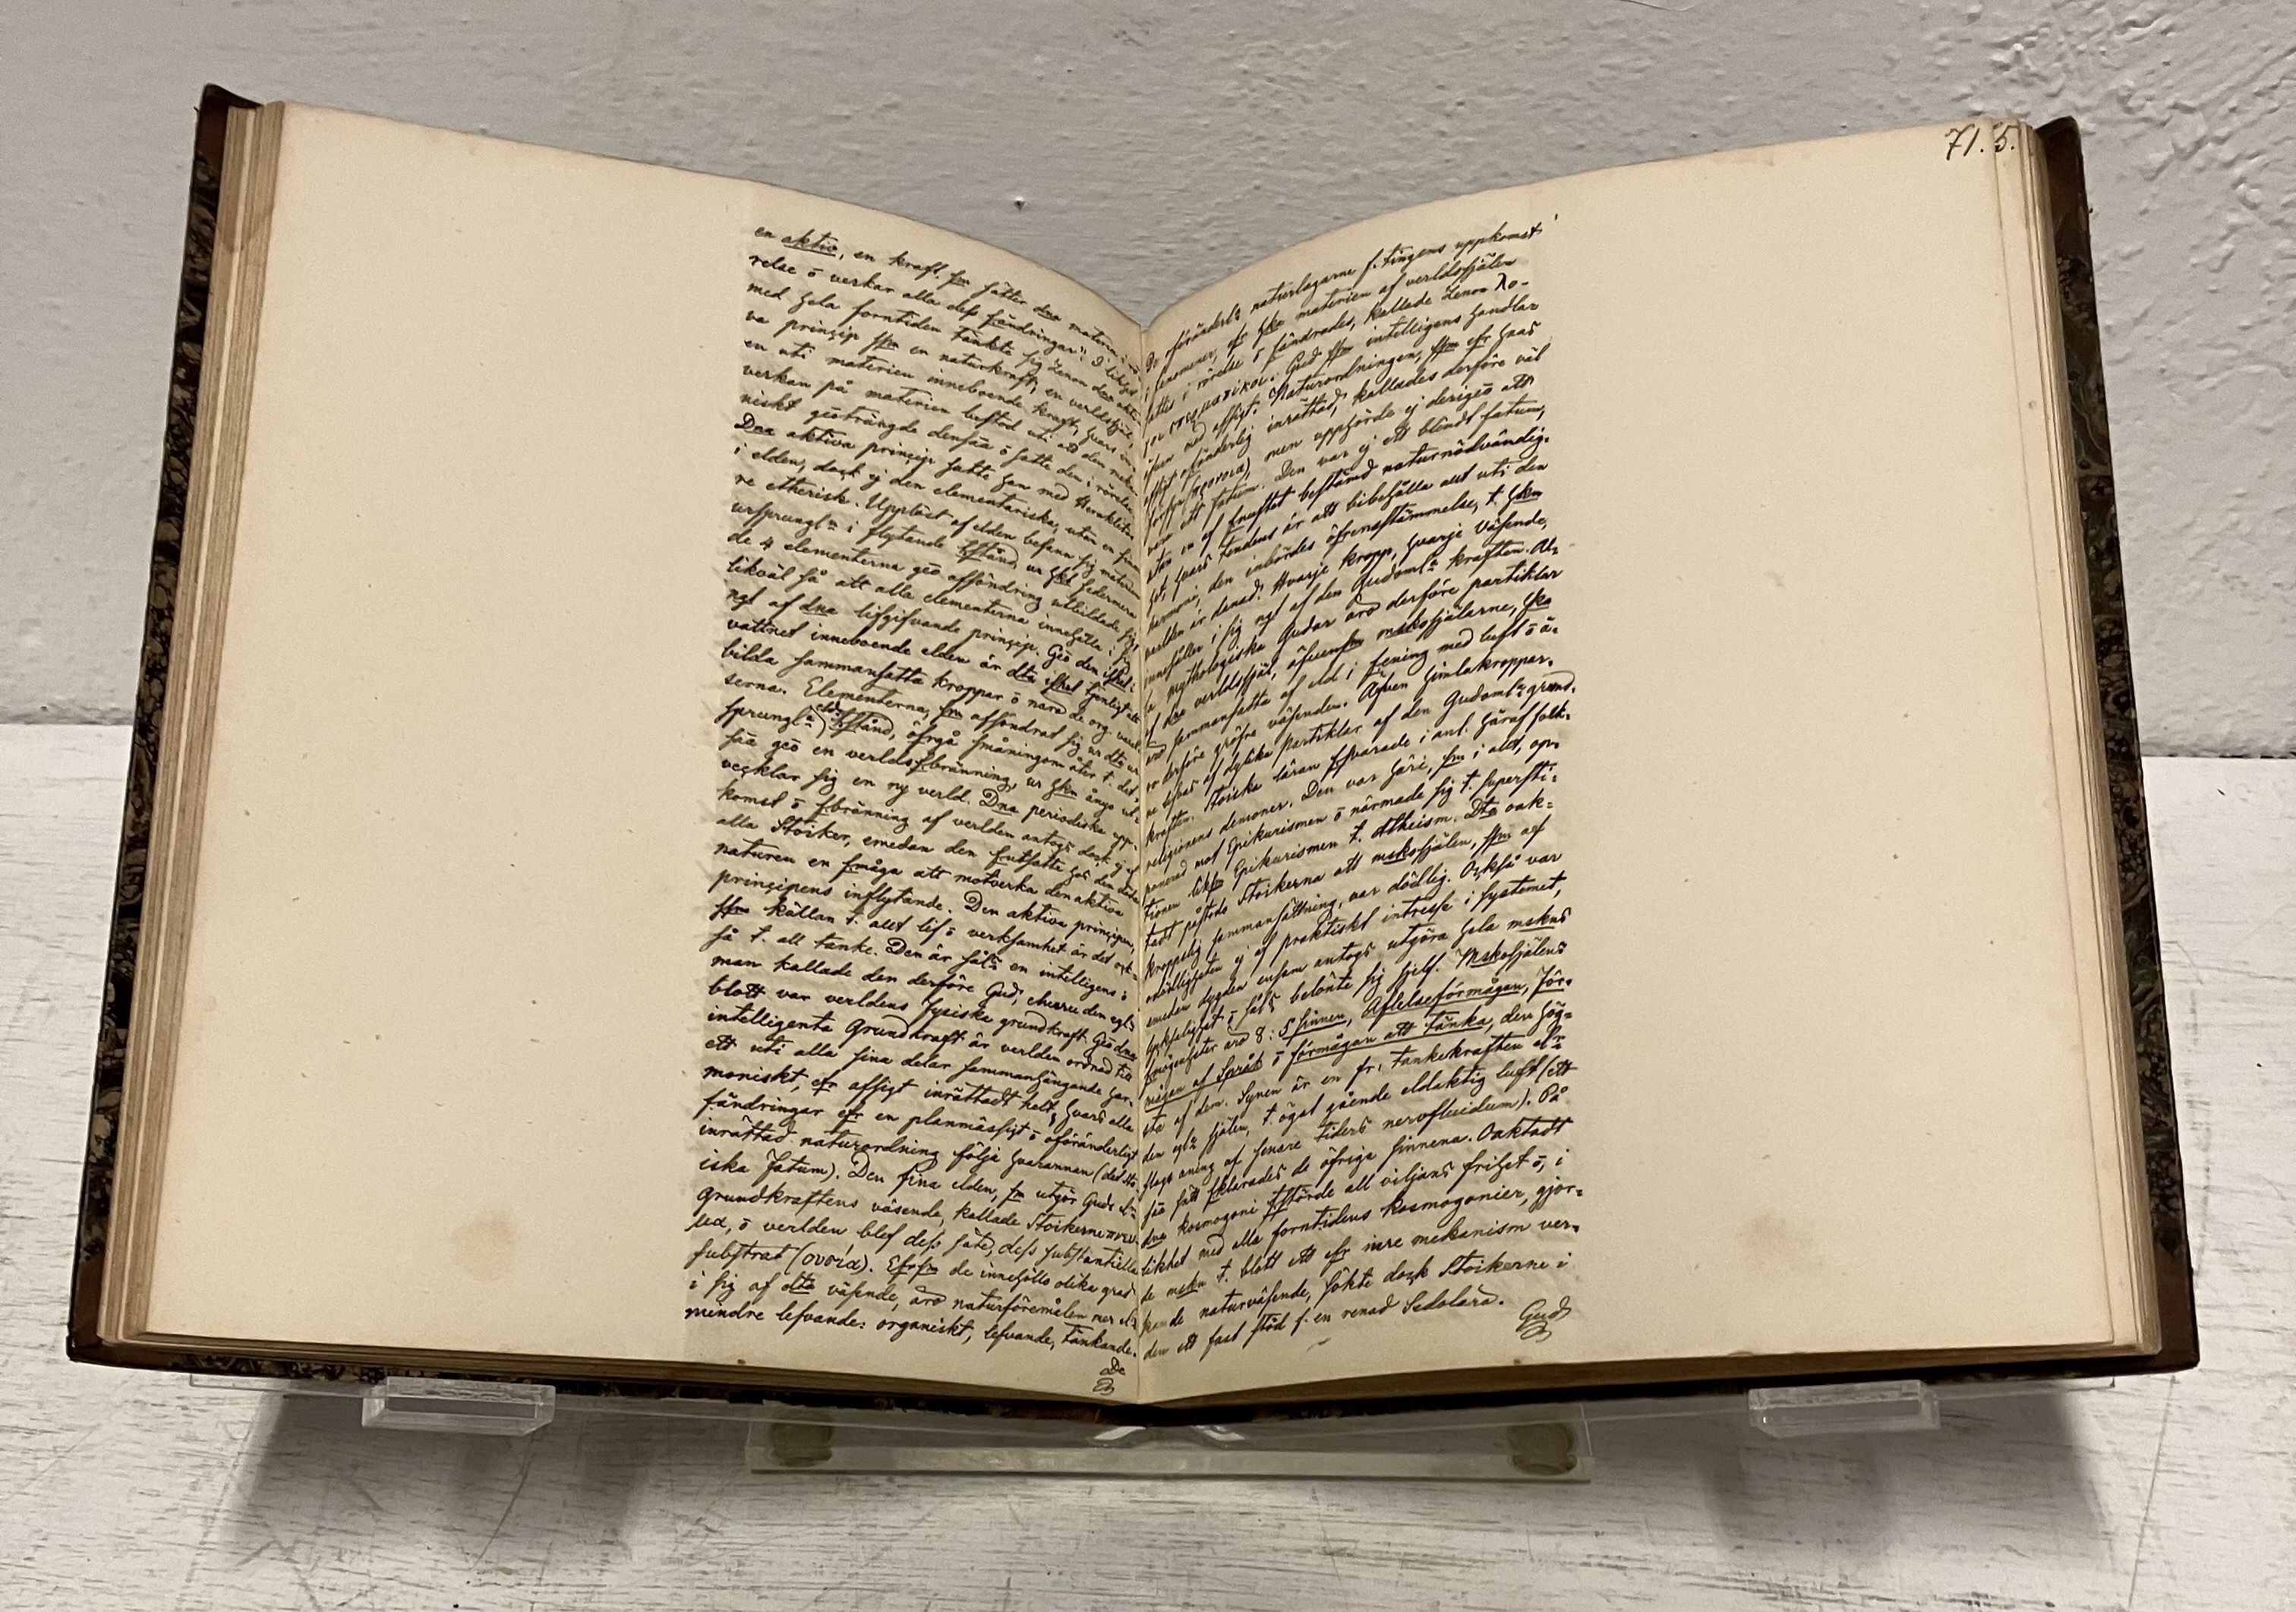 71.5.
en aktiv, en kraft, sm sätter dna materia i rö-
relse ō verkar alla dess fändringar". I likhet
med hela forntiden tänkte sig Zenon den akti-
va prinçip ssm en naturkraft, en verldssjäl,
en uti materien inneboende kraft, hvars in-
verkan på materien bestod uti att den meka-
niskt geōträngde densāa ō satte den i rörelse.
Dna aktiva prinçip satte han med Heraklitos
i elden, dock ej den elementariska, utan en fina-
re etherisk. Upplöst af elden befann sig materien
ursprungl: i flytande tstånd, ur hket sedermera
de 4 elementerna geō afsöndring utbildade sig,
likväl så att alla elementerna innehålla i sig
ngt af dna lifgifvande prinçip. Geō den i
vattnet inneboende elden är dta isht tjenligt att
bilda sammansatta kroppar ō nära de org. väsel-
serna. Elementerna, sm afsöndrat sig ur dta ur-
sprungl: eld tstånd, öfvgå småningom åter t. det-
sāa geō en verldsfbränning, ur hkn ånyo ut-
vecklar sig en ny verld. Dna periodiska upp-
komst ō fbränning af verlden antogs dock ej af
alla Stoiker, emedan den futsatte hos den döda
naturen en fmåga att motverka den aktiva
prinçipens inflytande. Den aktiva prinçipen,
ssm källan t. allt lif ō verksamhet är det ock-
så t. all tanke. Den är såls en intelligens ō
man kallade den derföre Gud, churu den egl:
blott var verldens fysiska grundkraft. Geō dna
intelligenta Grundkraft är verlden ordnad till
ett uti alla sina delar sammanhängande har-
moniskt, efr afsigt inrättadt helt, hvars alla
fändringar efr en planmässigt ō oföränderligt
inrättad naturordning följa hvarannan (det sto-
iska Fatum). Den fina elden, sm utgör Guds el:
Grundkraftens väsende, kallade Stoikerne πνευ-
μα, ō verlden blef dess säte, dess substantiella
substrat (ουσία). Efrsm de innehålla olika grad
i sig af dta väsende, äro naturföremålen mer el:
mindre lefvande: organiskt, lefvande, tänkande.
De
De oföränderl: naturlagarne f. tingens uppkomst
i fenomener, efr hka materien af verldssjälen
sattes i rörelse ō fändrades, kallade Zenon λο-
γοι σπερματικοι. Gud ssm intelligens handlar
äfven med afsigt. Naturordningen, ssm efr hans
afsigt oföränderlig inrättad, kallades derföre väl
försyn (πρόνοια), men upphörde ej derigeō att
vara ett fatum. Den var ej ett blindt fatum,
utan en af fnuftet bestämd naturnödvändig-
het, hvars tendens är att bibehålla allt uti den
harmoni, den inbördes öfvensstämmelse, t. hkn
verlden är danad. Hvarje kropp, hvarje väsende,
innehåller i sig ngt af den Gudoml: kraften. Al-
la mythologiska Gudar äro derföre partiklar
af dna verldssjäl, äfvensm mskosjälarne, hka
äro sammansatta af eld i fening med luft ō ä-
ro derföre gröfre väsenden. Äfven himlakroppar-
ne lifvas af dylika partiklar af den Gudoml: grund-
kraften. Stoiska läran fsvarade i anl. häraf folk-
religionens demoner. Den var häri, sm i allt, op-
ponerad mot Epikurismen ō närmade sig t. supersti-
tionen likssm Epikurismen t. Atheism. Dta oak-
tadt påstodo Stoikerna att mskosjälen, ssm af
kroppslig sammansättning, var dödlig. Också var
odödligheten ej af praktiskt intresse i systemet,
emedan dygden ensam antogs utgöra hela mskns
lycksalighet ō såls belönte sig sjelf. Mskosjälens
fmögenheter äro 8: 5 sinnen, Aflelseförmågan, För-
mågan af Språk ō förmågan att tänka, den hög-
sta af dem. Synen är en fr. tankekraften el:
den egl: själen, t. ögat gående eldaktig luft (ett
slags aning af senare tiders nervfluidum). På
sāa sätt fklarades de öfriga sinnena. Oaktadt
dna kosmogoni tstörde all viljans frihet ō, i
likhet med alla forntidens kosmogonier, gjor-
de mskn t. blott ett efr inre mekanism ver-
kande naturväsende, sökte dock Stoikerne i
den ett fast stöd f. en renad Sedolära.
Guds